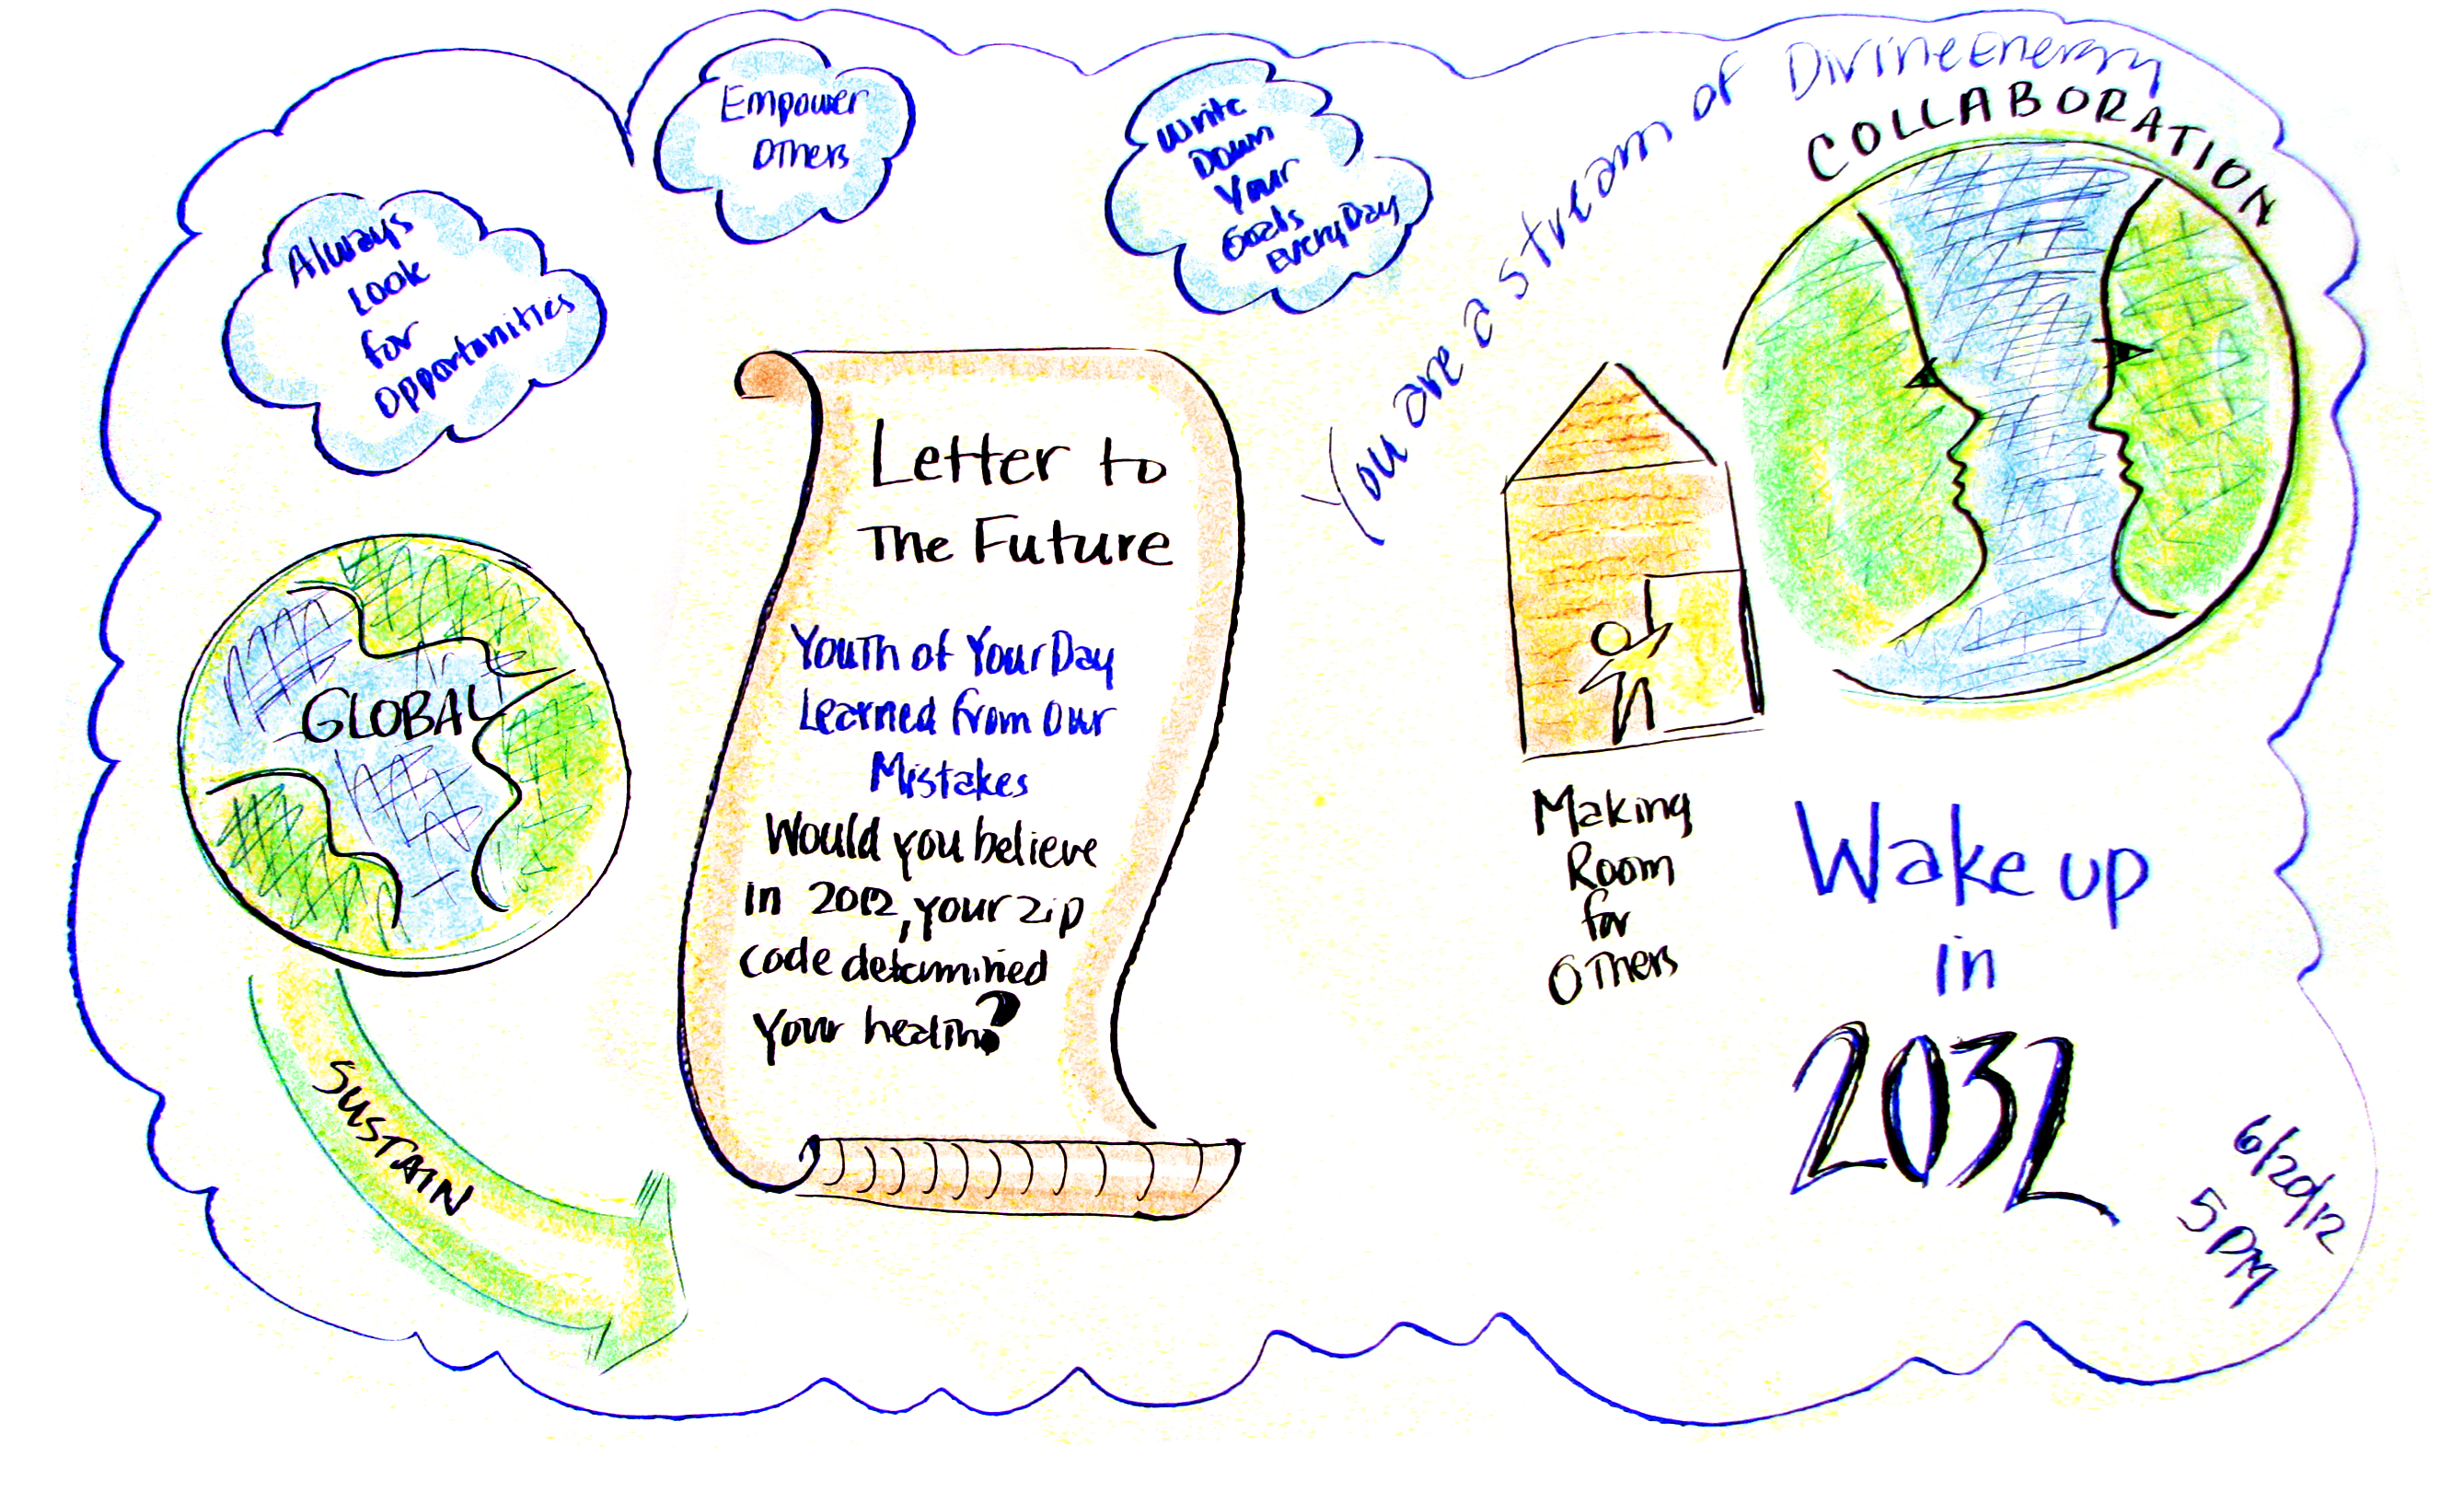 Empower
Others
Write
Down
Your
Goals
Every Day
You are a stream of Divine Energy
COLLABORATION
Always
Look
for
Opportunities
Letter to
The Future
Youth of Your Day
Learned from Our
Mistakes
Would you believe
in 2012, your zip
code determined
Your health?
GLOBAL
SUSTAIN
Making
Room
for
Others
Wake up
in
2032
6/20/12
5 PM